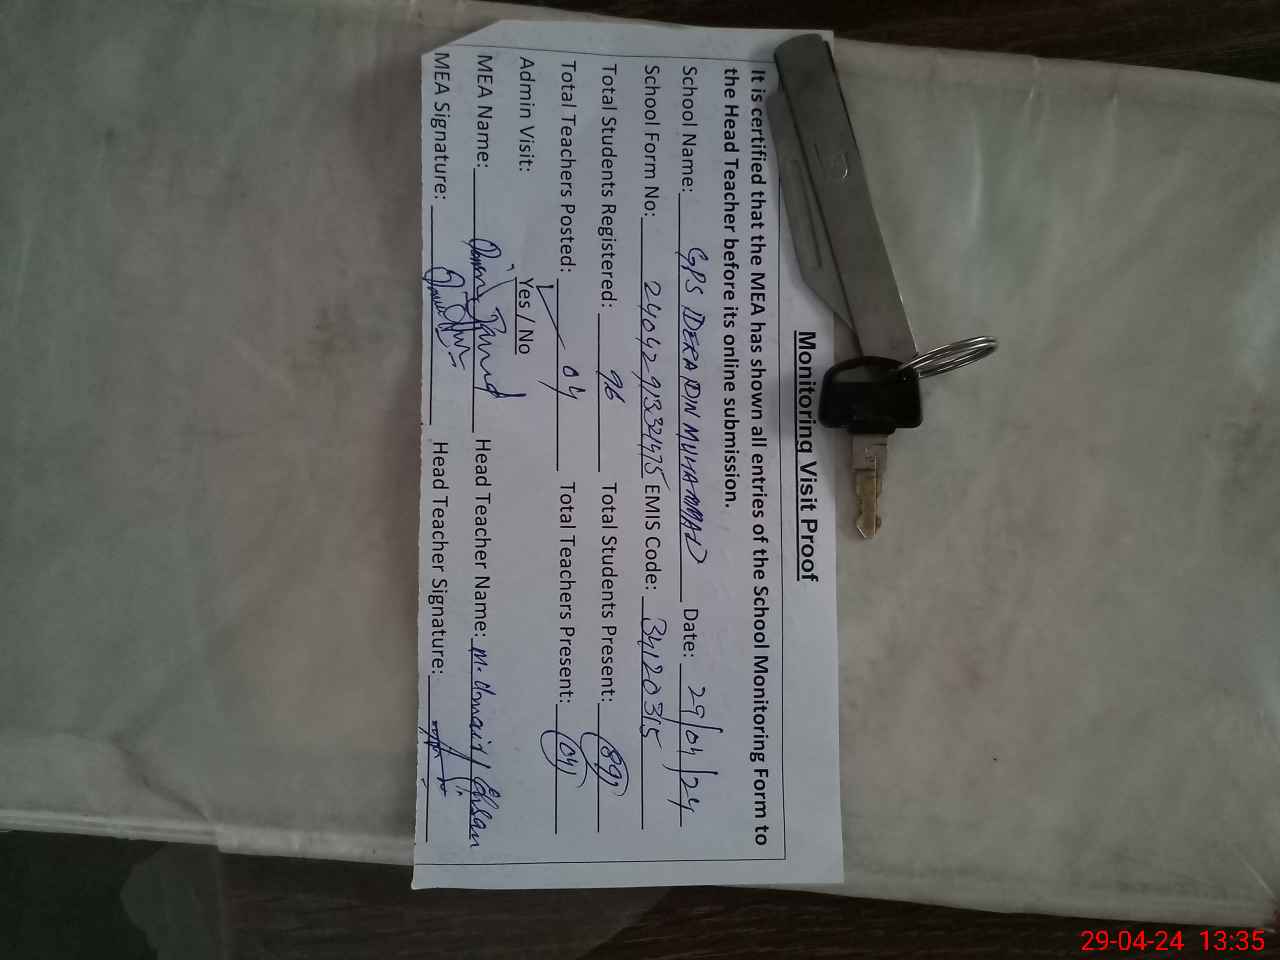 Monitoring Visit Proof
It is certified that the MEA has shown all entries of the School Monitoring Form to
the Head Teacher before its online submission.
School Name: GPS DERA DIN MUHAMMAD Date: 29/04/24
School Form No: EMIS Code: 34120315
Total Students Registered: 96 Total Students Present: 89
Total Teachers Posted: 04 Total Teachers Present: 04
Admin Visit: Yes / No
MEA Name: Head Teacher Name: M. Umair / Ehsan
MEA Signature: Head Teacher Signature:
29-04-24 13:35